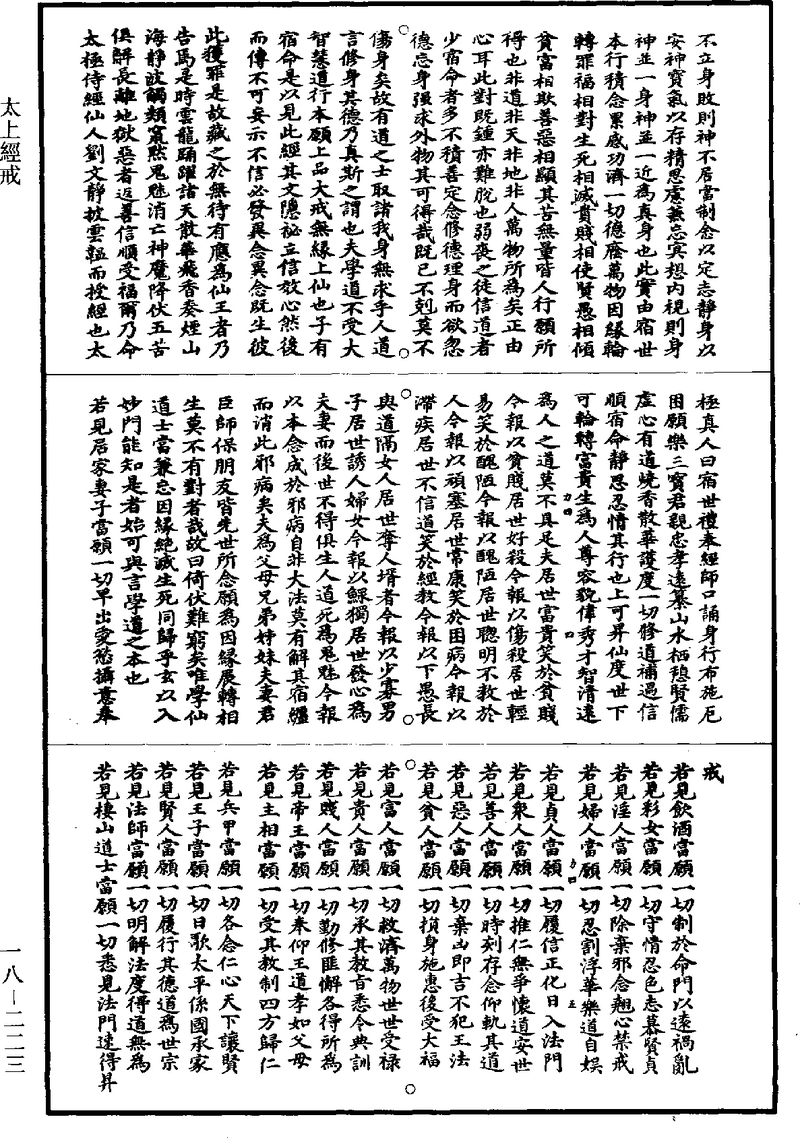 太上經戒
一八—二二三
不立身敗則神不居當制念以定志靜身以
安神寶氣以存精思慮兼忘冥想內視則身
神並一身神並一近為真身也此實由宿世
本行積念累感功濟一切德廕萬物因緣輪
轉罪福相對生死相滅貴賤相使賢愚相傾
貧富相欺善惡相顯其苦無量皆人行願所
得也非道非天非地非人萬物所為矣正由
心耳此對既鍾亦難脫也弱喪之徒信道者
少宿命者多不積善定念修德理身而欲忽
德忘身强求外物其可得哉既已不剋莫不
傷身矣故有道之士取諸我身無求乎人道
言修身其德乃真斯之謂也夫學道不受大
智慧道行本願上品大戒無緣上仙也子有
宿命是以見此經其文隱祕立信效心然後
而傳不可妄示不信必發異念異念既生彼
此獲罪是故藏之於無待有應為仙王者乃
告焉是時雲龍踊躍諸天散華飛香奏煙山
海靜波觸類窅然鬼魅消亡神魔降伏五苦
俱解長離地獄惡者返善信順受福爾乃命
太極侍經仙人劉文靜披雲韞而授經也太
極真人曰宿世禮奉經師口誦身行布施厄
困願樂三寶君親忠孝遠慕山水栖憩賢儒
虛心有道燒香散華護度一切修道補過信
順宿命靜思忍情其行也上可昇仙度世下
可輪轉富貴生為人尊容貌偉秀才智清遠
為人之道莫不具足夫居世富貴笑於貧賤
今報以貧賤居世好殺今報以傷殺居世輕
易笑於醜陋今報以醜陋居世聰明不教於
人今報以頑塞居世常康笑於困病今報以
滯疾居世不信道笑於經教今報以下愚長
與道隔女人居世奪人壻者今報以少寡男
子居世誘人婦女今報以鰥獨居世發心為
夫妻而後世不得俱生人道死為鬼魅今報
以本念成於邪病自非大法莫有解其宿纏
而消此邪病矣夫為父母兄弟姊妹夫妻君
臣師保朋友皆先世所念願為因緣展轉相
生莫不有對者哉故曰倚伏難窮矣唯學仙
道士當兼忘因緣絕滅生死同歸乎玄以入
妙門能知是者始可與言學道之本也
若見居家妻子當願一切早出愛慾攝意奉
戒
若見飲酒當願一切制於命門以遠禍亂
若見彩女當願一切守情忍色志慕賢貞
若見淫人當願一切除棄邪念翹心禁戒
若見婦人當願一切忍割浮華樂道自娛
若見貞人當願一切履信正化日入法門
若見衆人當願一切推仁無爭懷道安世
若見善人當願一切時刻存念仰軌其道
若見惡人當願一切棄凶即吉不犯王法
若見貧人當願一切損身施惠後受大福
若見富人當願一切救濟萬物世世受祿
若見貴人當願一切承其教旨悉令典訓
若見賤人當願一切勤修匪懈各得所為
若見帝王當願一切奉仰王道孝如父母
若見主相當願一切受其教制四方歸仁
若見兵甲當願一切各念仁心天下讓賢
若見王子當願一切日歌太平係國承家
若見賢人當願一切履行其德道為世宗
若見法師當願一切明解法度得道無為
若見棲山道士當願一切悉見法門速得昇